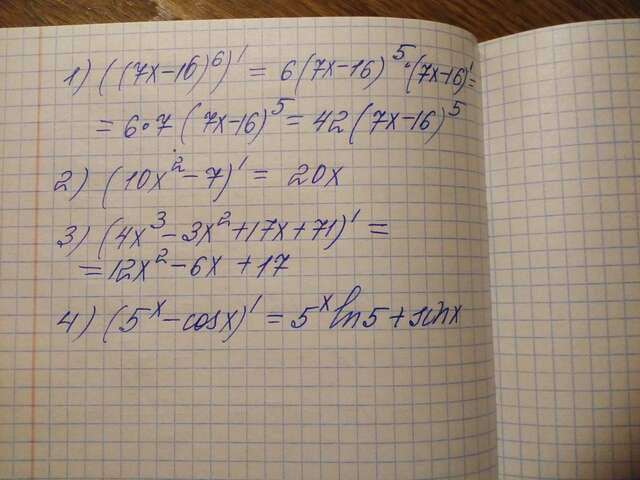 1) ((7x-16)⁶)' = 6(7x-16)⁵·(7x-16)' =
= 6·7(7x-16)⁵ = 42(7x-16)⁵
2) (10x²-7)' = 20x
3) (4x³-3x²+17x+71)' =
= 12x²-6x+17
4) (5ˣ-cosx)' = 5ˣln5+sinx